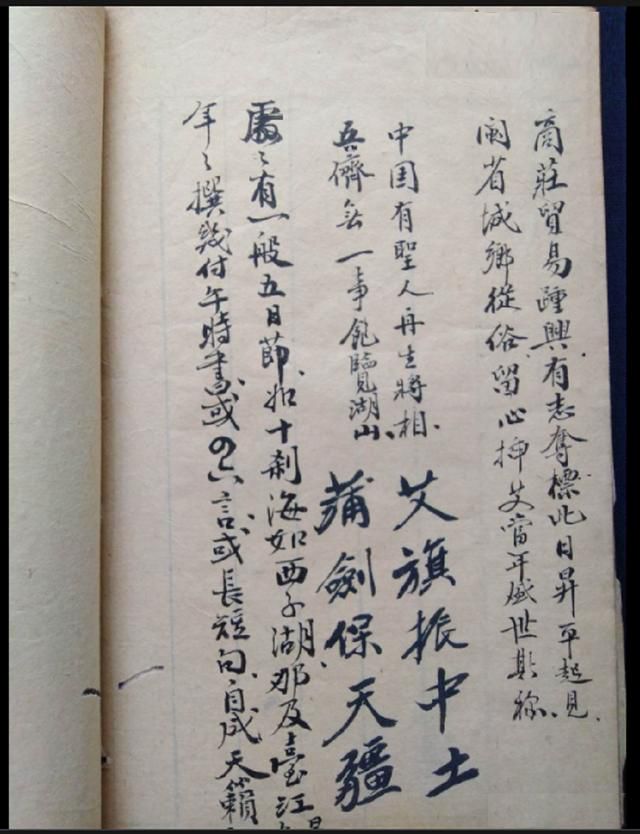 商莊貿易踵興有志奪標此日昇平起見
閩省城鄉從俗留心插艾當年盛世熙穆
中国有聖人再生將相
吾儕無一事飽覽湖山
艾旗振中土
蒲劍保天疆
處〻有一般五日節如十刹海如西子湖那及臺江
年〻撰幾付午時書或四六言或長短句自成天籟